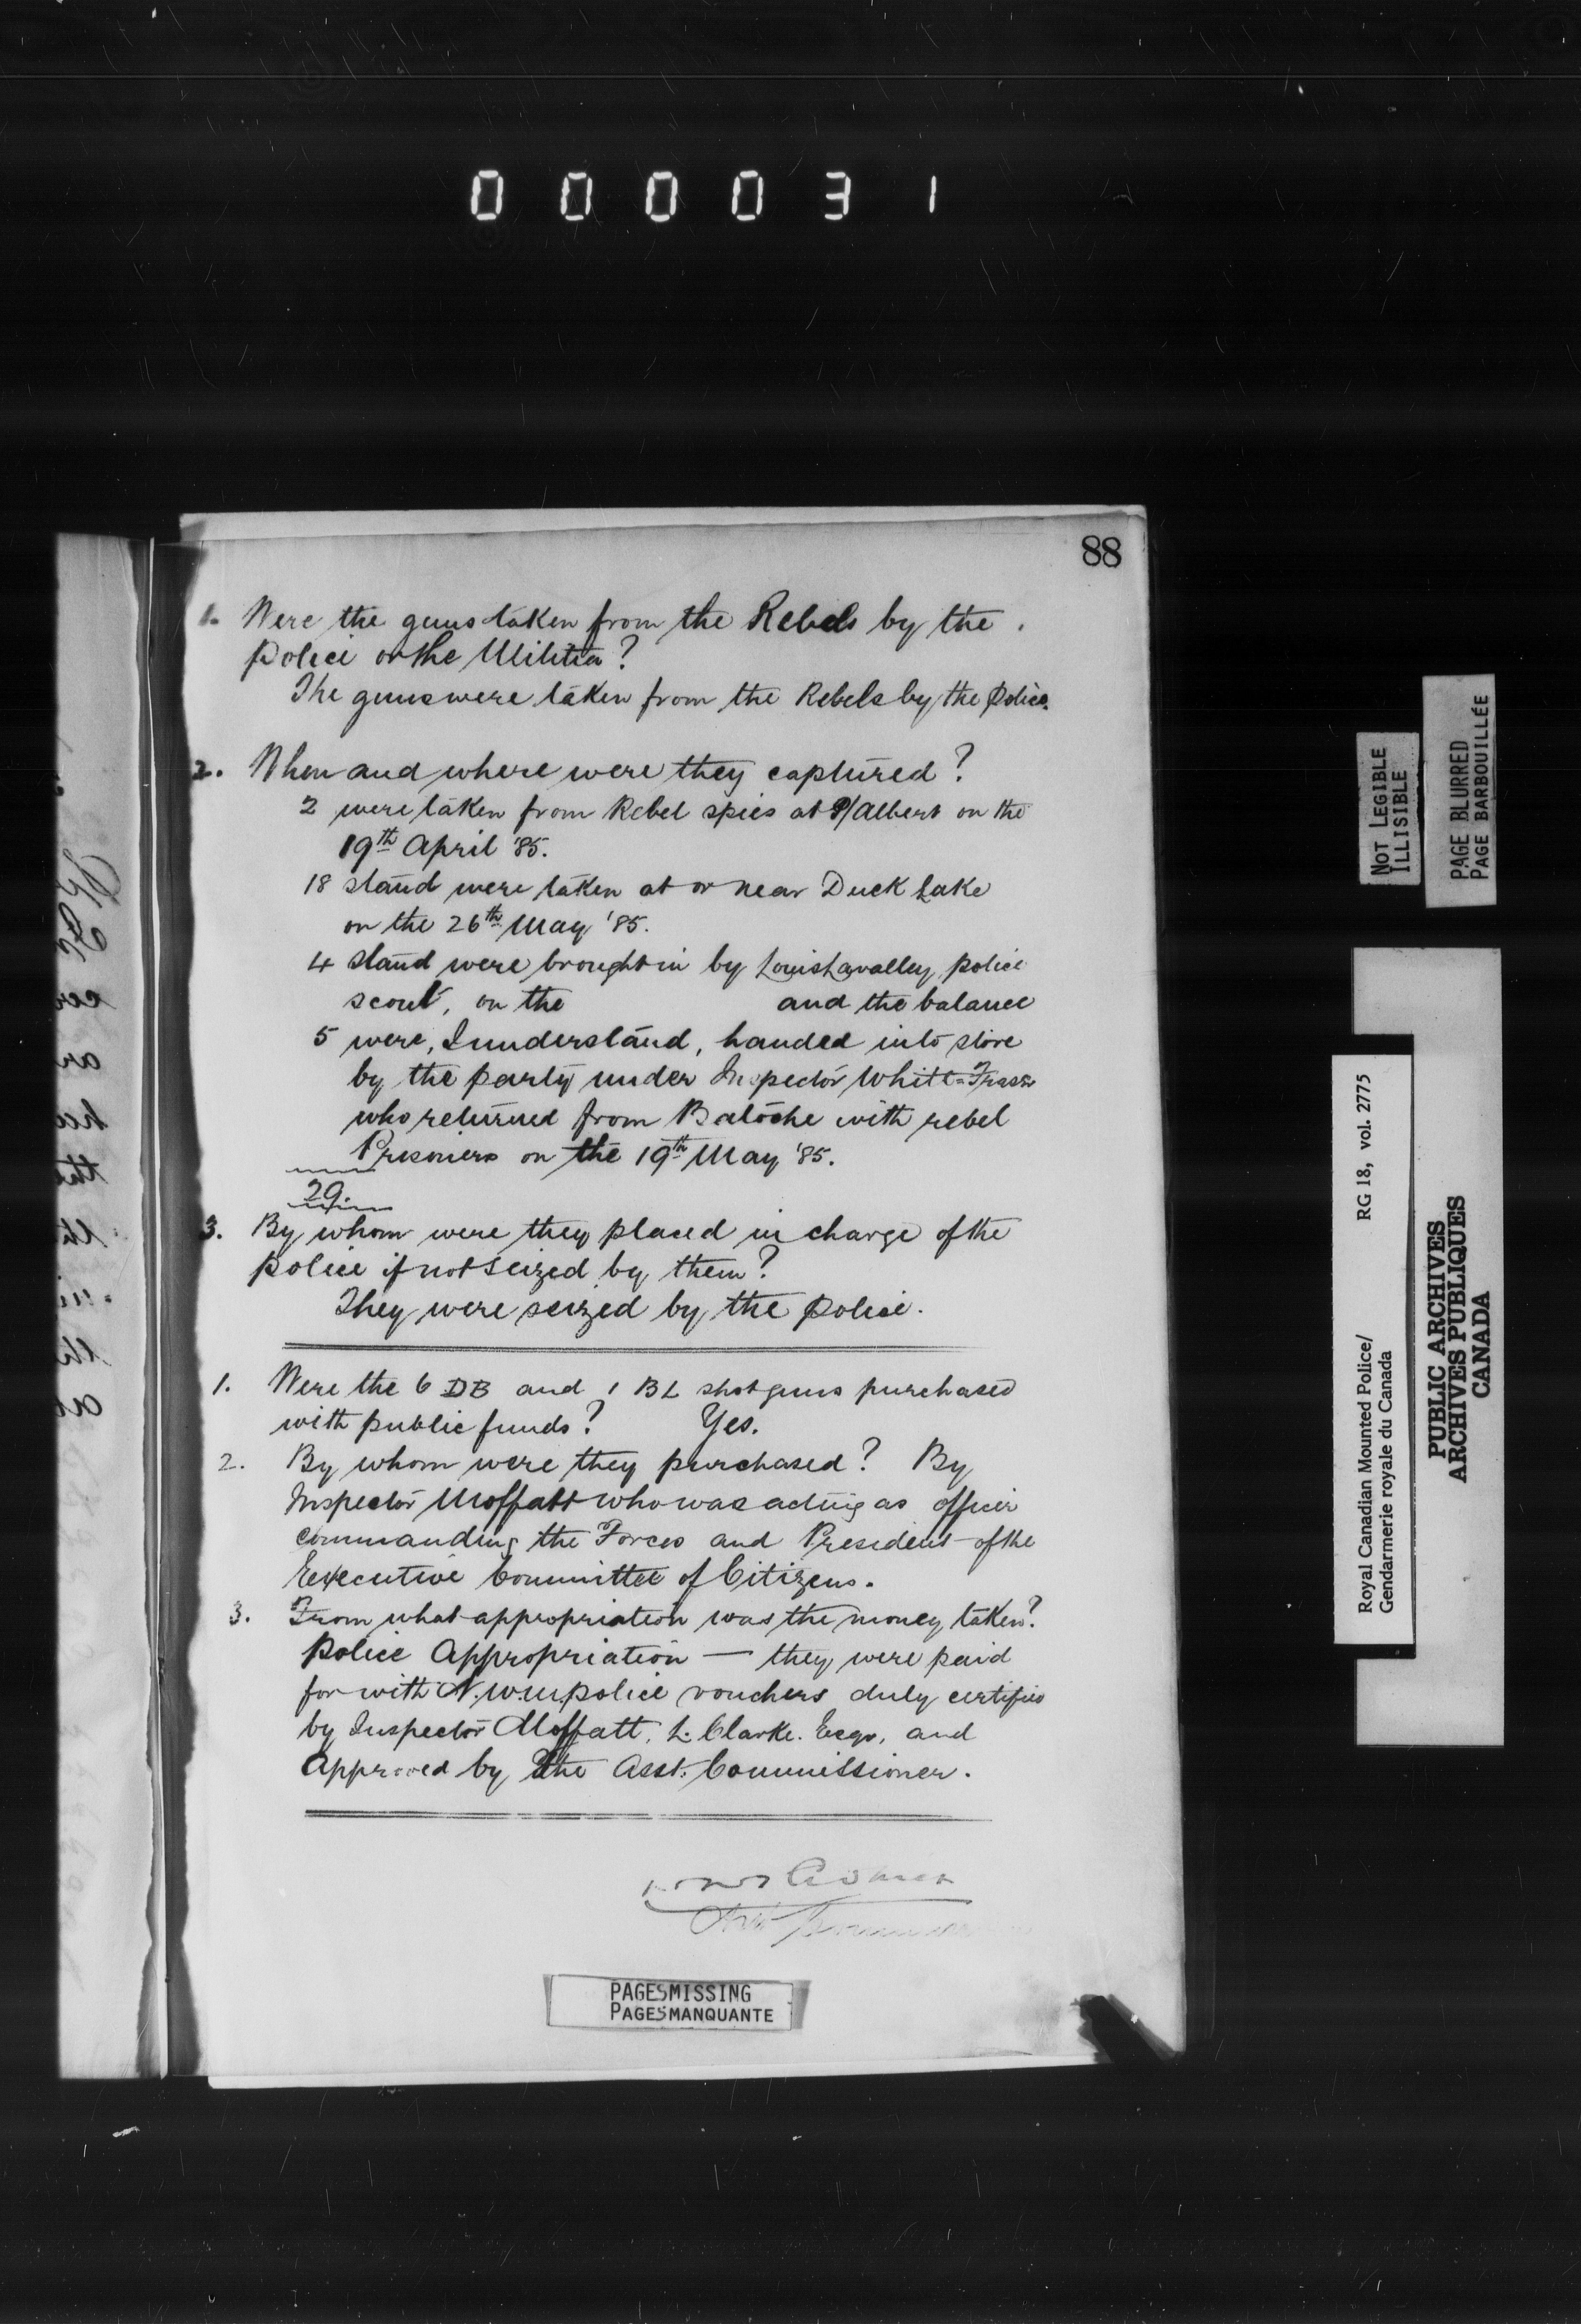 000031
88
1. Were the guns taken from the Rebels by the
Police or the Militia?
The guns were taken from the Rebels by the Police.
2. When and where were they captured?
2 were taken from Rebel spies at P/Albert on the
19th April '85.
18 stand were taken at or near Duck Lake
on the 26th May '85.
4 stand were brought in by Louis Lavalley, police
scout, on the and the balance
5 were, I understand, handed into store
by the party under Inspector White-Fraser
who returned from Batoche with rebel
Prisoners on the 19th May '85.
29.
3. By whom were they placed in charge of the
police if not seized by them?
They were seized by the police.
1. Were the 6 DB and 1 BL shot guns purchased
with public funds? Yes.
2. By whom were they purchased? By
Inspector Moffatt who was acting as officer
commanding the Forces and President of the
Executive Committee of Citizens.
3. From what appropriation was the money taken?
Police Appropriation — they were paid
for with N.W.M police vouchers duly certified
by Inspector Moffatt, L. Clarke. Esqr, and
Approved by the Asst. Commissioner.
PAGES MISSING
PAGES MANQUANTE
NOT LEGIBLE
ILLISIBLE
PAGE BLURRED
PAGE BARBOUILLÉE
Royal Canadian Mounted Police/ RG 18, vol. 2775
Gendarmerie royale du Canada
PUBLIC ARCHIVES
ARCHIVES PUBLIQUES
CANADA